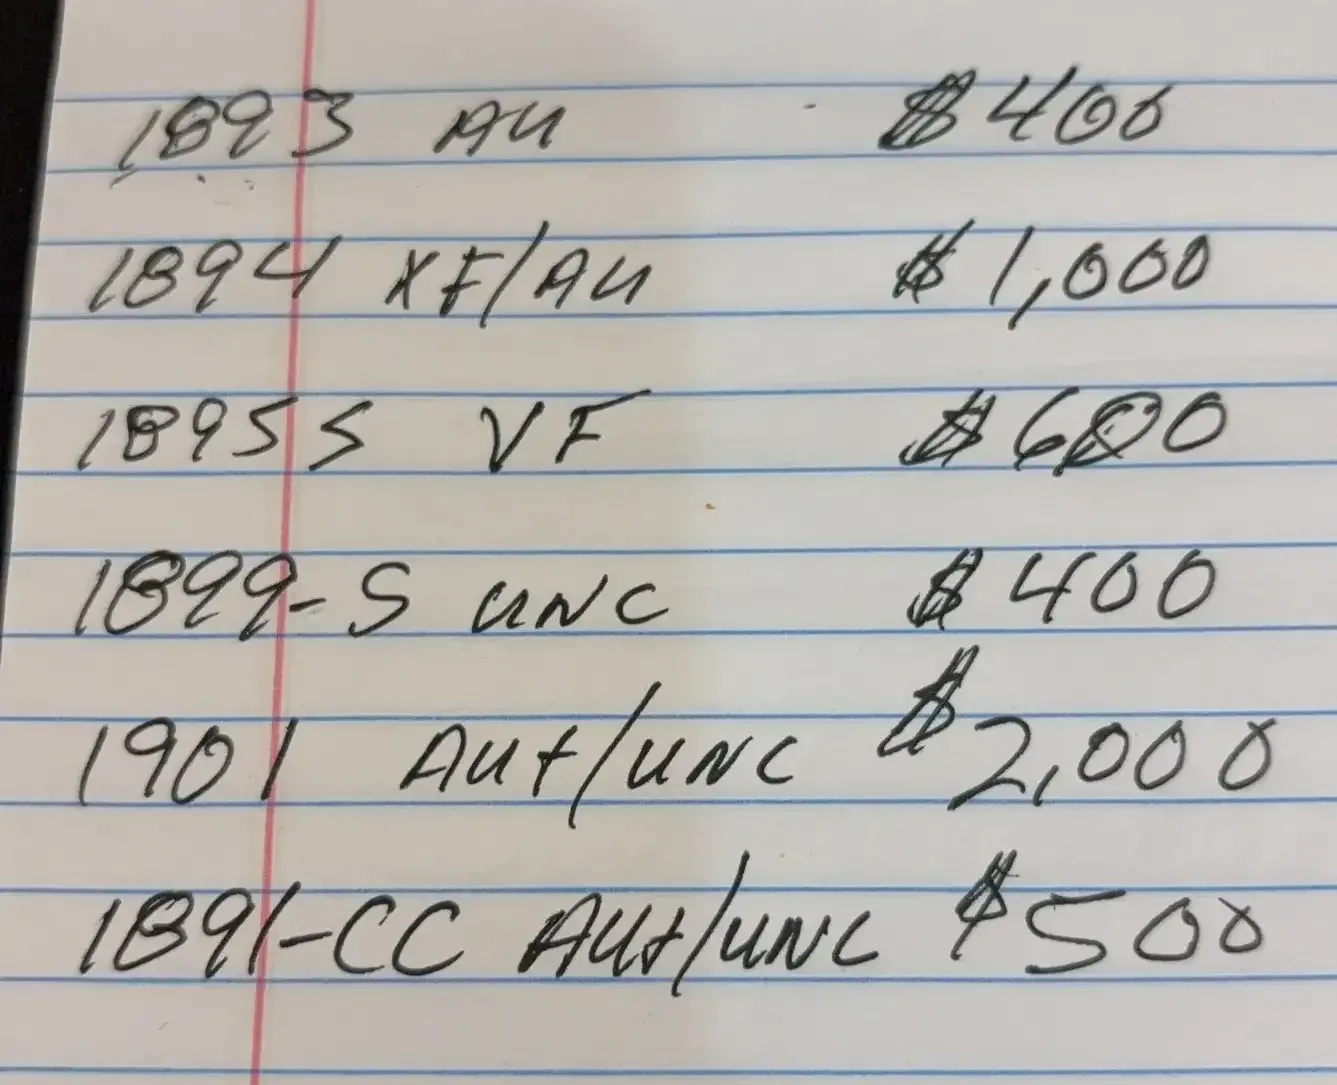 1893 AU $400
1894 XF/AU $1,000
1895 S VF $600
1899-S UNC $400
1901 AU+/UNC $2,000
1891-CC AU+/UNC $500